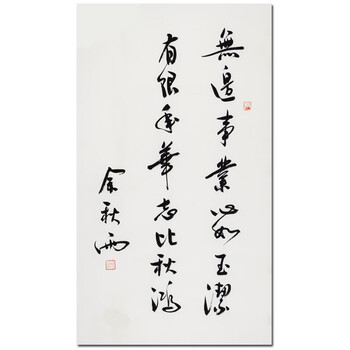 無邊事業心如玉潔
有限年華志比秋鴻
余秋雨